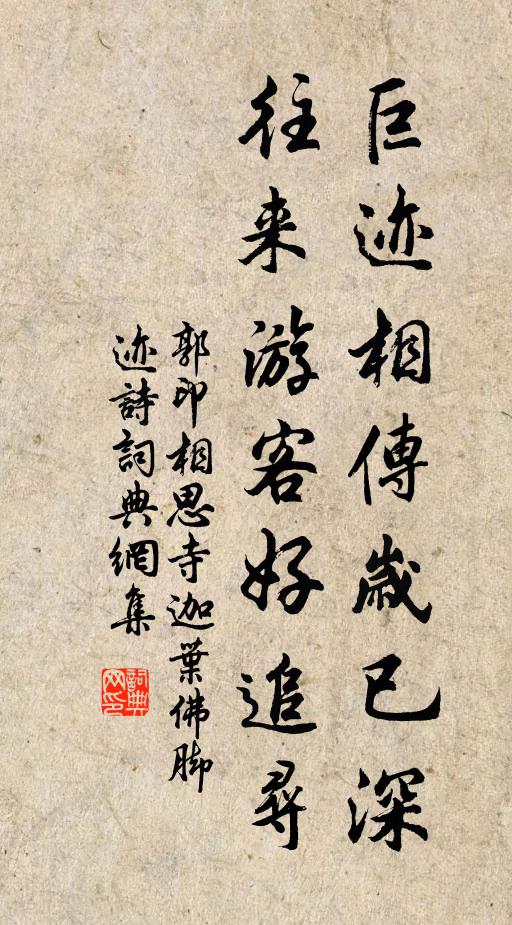 巨迹相傳歲已深
往来游客好追尋
郭印相思寺迦葉佛脚
迹詩詞典網集
詞典网印